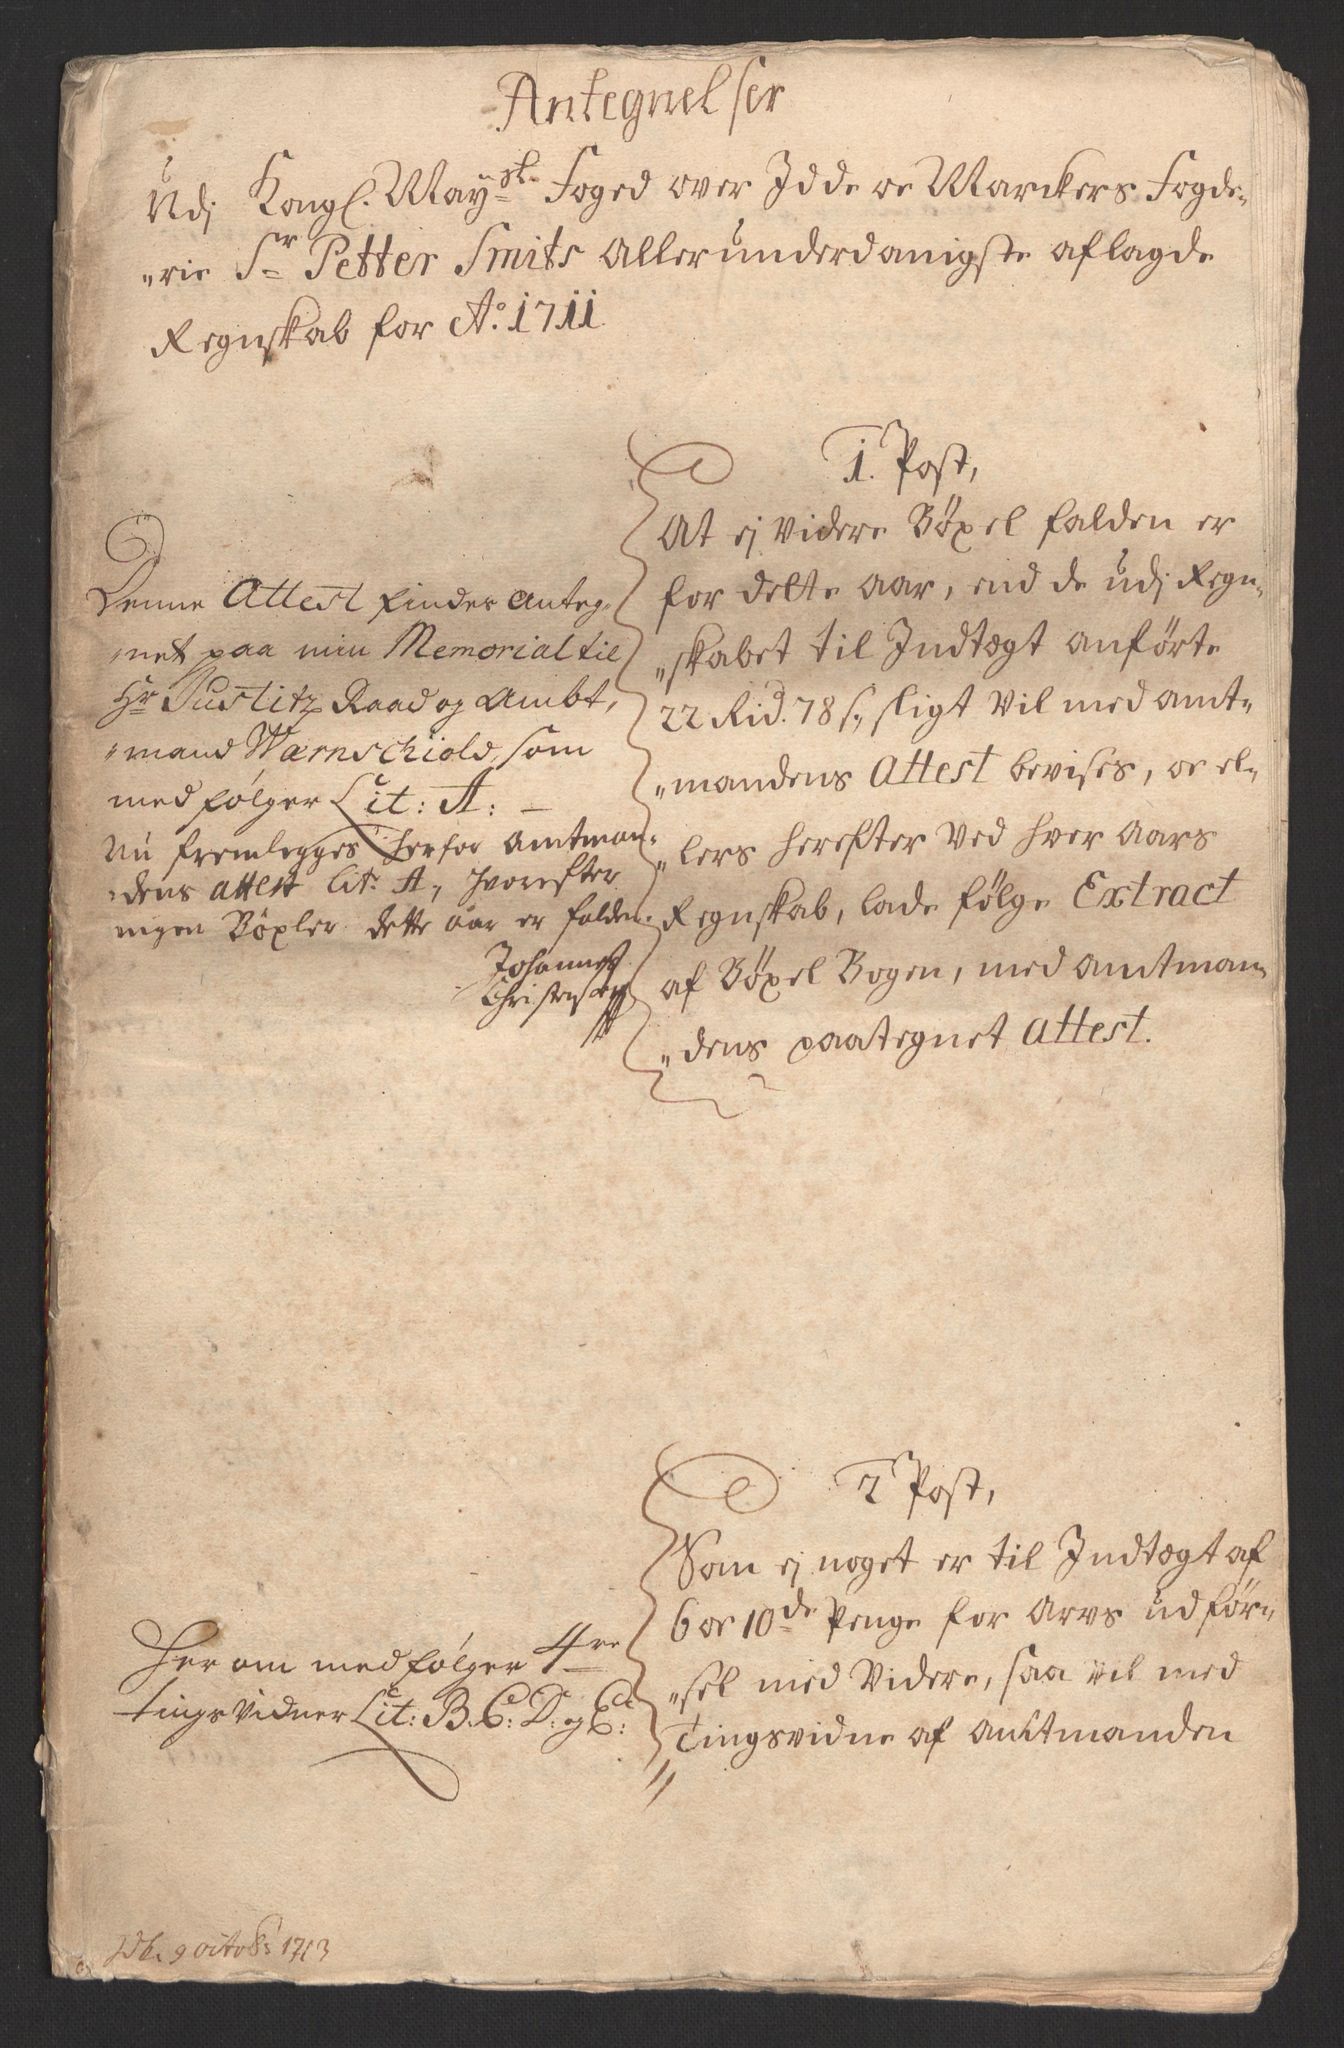 Antegnelser
Udj Kongl. Mayst. Foged over Idde oc Marckers Fogde„
„rie Sr Petter Smits Allerunderdanigste aflagde
Regnskab for Ao. 1711
1. Post,
At ej Videre Böxel falden er
for dette aar, end de udj Regn„
„skabet til Indtægt anförte
22 Rid. 78 s., sligt Vil med amt„
„mandens Attest bevises, oc el„
„lers herefter Ved hver Aars
Regnskab, lade fölge Extract
af Böxel Bogen, med amtman„
„dens paategnet Attest.
Denne Attest findes Anteg„
„net paa min Memorial til
Hr Justitz Raad og Ambt,
„mand Wærnschiold, som
med fölger Lit: A: —
Nu fremlegges herfor Amtman„
„dens attest lit. A, hvorefter
ingen Böxler dette aar er falden.
Johannes
Christensen
2 Post,
Som ej noget er til Indtægt af
6 oc 10de Penge for Arvs udför„
„sel med Videre, saa vil med
Tingsvidne af Amtmanden
Her om med fölger 4re
tingsvidner Lit: B. C: D: og E:
9 octobr 1713